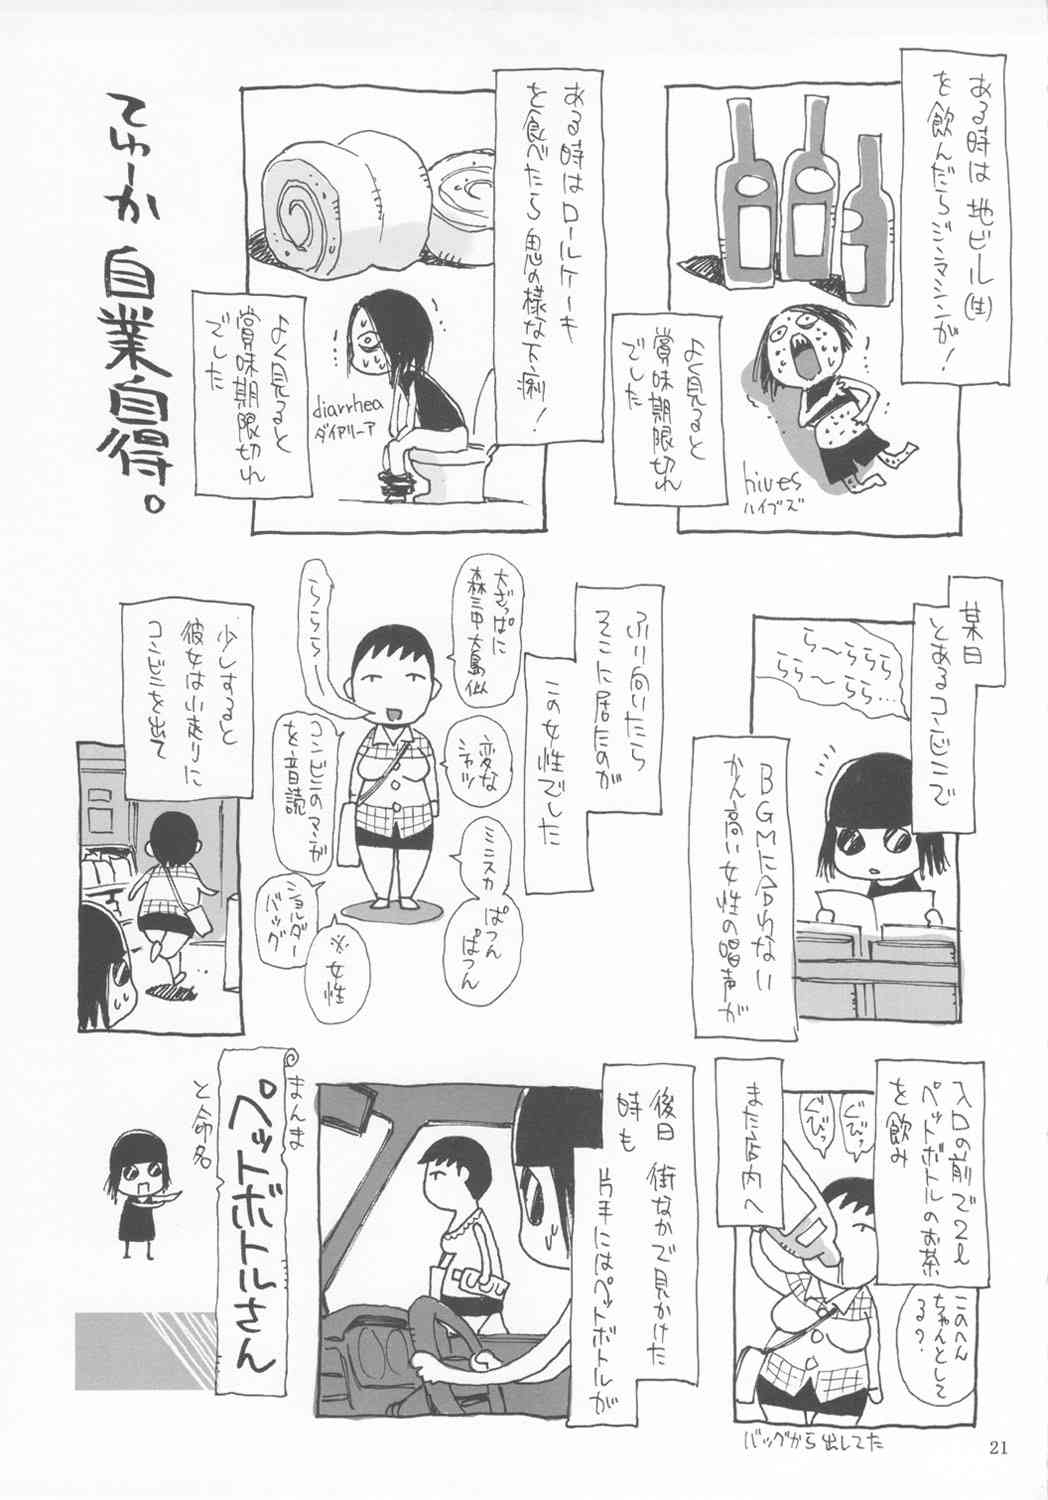 ある時は地ビール(生)
を飲んだらジンマシンが!
よく見ると
賞味期限切れ
でした
hives
ハイブズ
ある時はロールケーキ
を食べたら鬼の様な下痢!
よく見ると
賞味期限切れ
でした
diarrhea
ダイアリーア
てゆーか 自業自得。
某日
とあるコンビニで
ら〜らららら
らら〜らら…
BGMに合わない
かん高い女性の唱声が
ふり向いたら
そこに居たのが
この女性でした
大ざっぱに
森三中大島似
ららら〜
変な
シャツ
コンビニのマンガ
を音読
ミニスカ
ぱつん
ぱつん
ショルダー
バッグ
※女性
少しすると
彼女は小走りに
コンビニを出て
入口の前で2ℓ
ペットボトルのお茶
を飲み
ぐびっ
ぐびっ
このへん
ちゃんとして
る?
バッグから出してた
また店内へ
後日 街なかで見かけた
時も 片手にはペットボトルが
まんま
ペットボトルさん
と命名
21